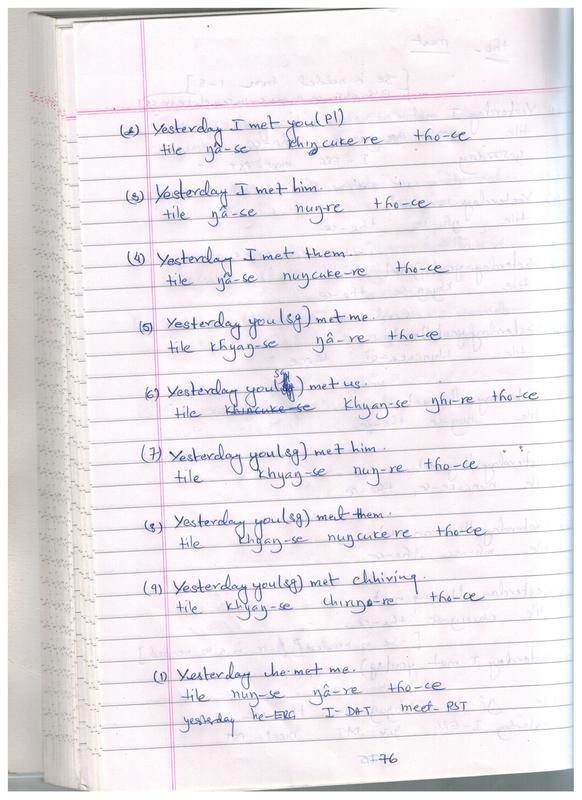 (2) Yesterday I met you (pl)
tile ŋâ-se khincuke re tho-ce
(3) Yesterday I met him.
tile ŋâ-se nuŋ-re tho-ce
(4) Yesterday I met them.
tile ŋâ-se nuŋcuke-re tho-ce
(5) Yesterday you (sg) met me.
tile khyaŋ-se ŋâ-re tho-ce
(6) Yesterday you (sg) met us.
tile khincuke-se khyaŋ-se ŋhi-re tho-ce
(7) Yesterday you (sg) met him.
tile khyaŋ-se nuŋ-re tho-ce
(8) Yesterday you (sg) met them.
tile khyaŋ-se nuŋcuke re tho-ce
(9) Yesterday you (sg) met chhiring.
tile khyaŋ-se tho-ce
(1) Yesterday he met me.
tile nuŋ-se ŋâ-re tho-ce
yesterday he-ERG I-DAT meet-PST
76